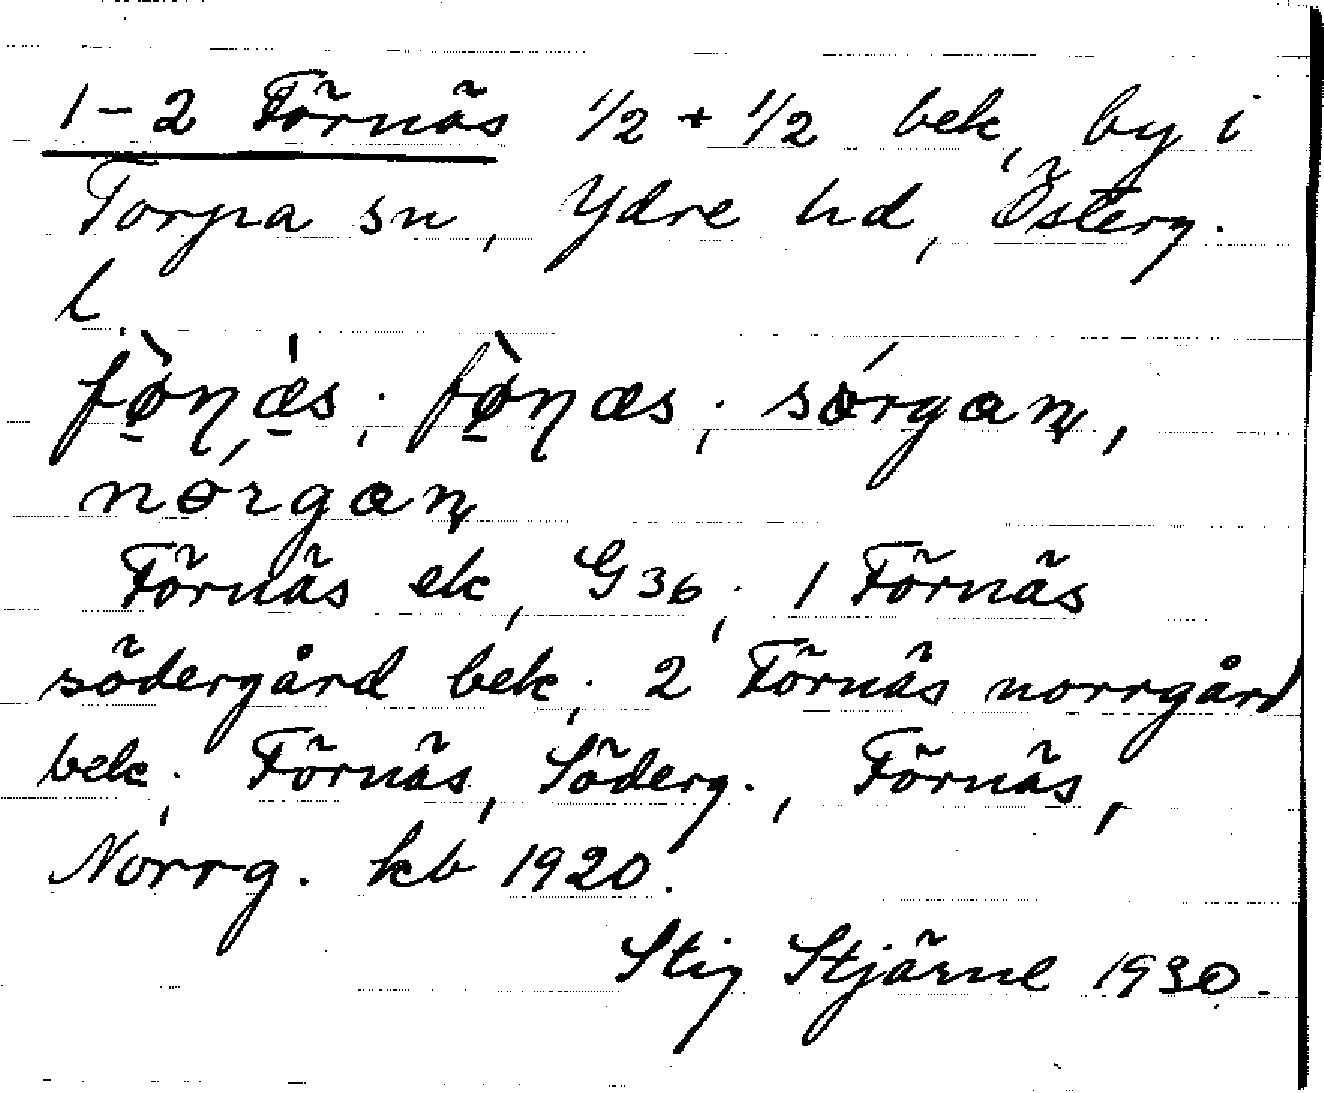 1-2 Förnäs 1/2 + 1/2 bek, by i
Torpa sn, Ydre hd, Österg.
l.
fø̀ɳæ̍s; fø̀ɳæs; sǿrgan,
nórgan
Förnäs ek, G36; 1 Förnäs
södergård bek; 2 Förnäs norrgård
bek; Förnäs, Söderg., Förnäs,
Norrg. kb 1920.
Stig Stjärne 1930.